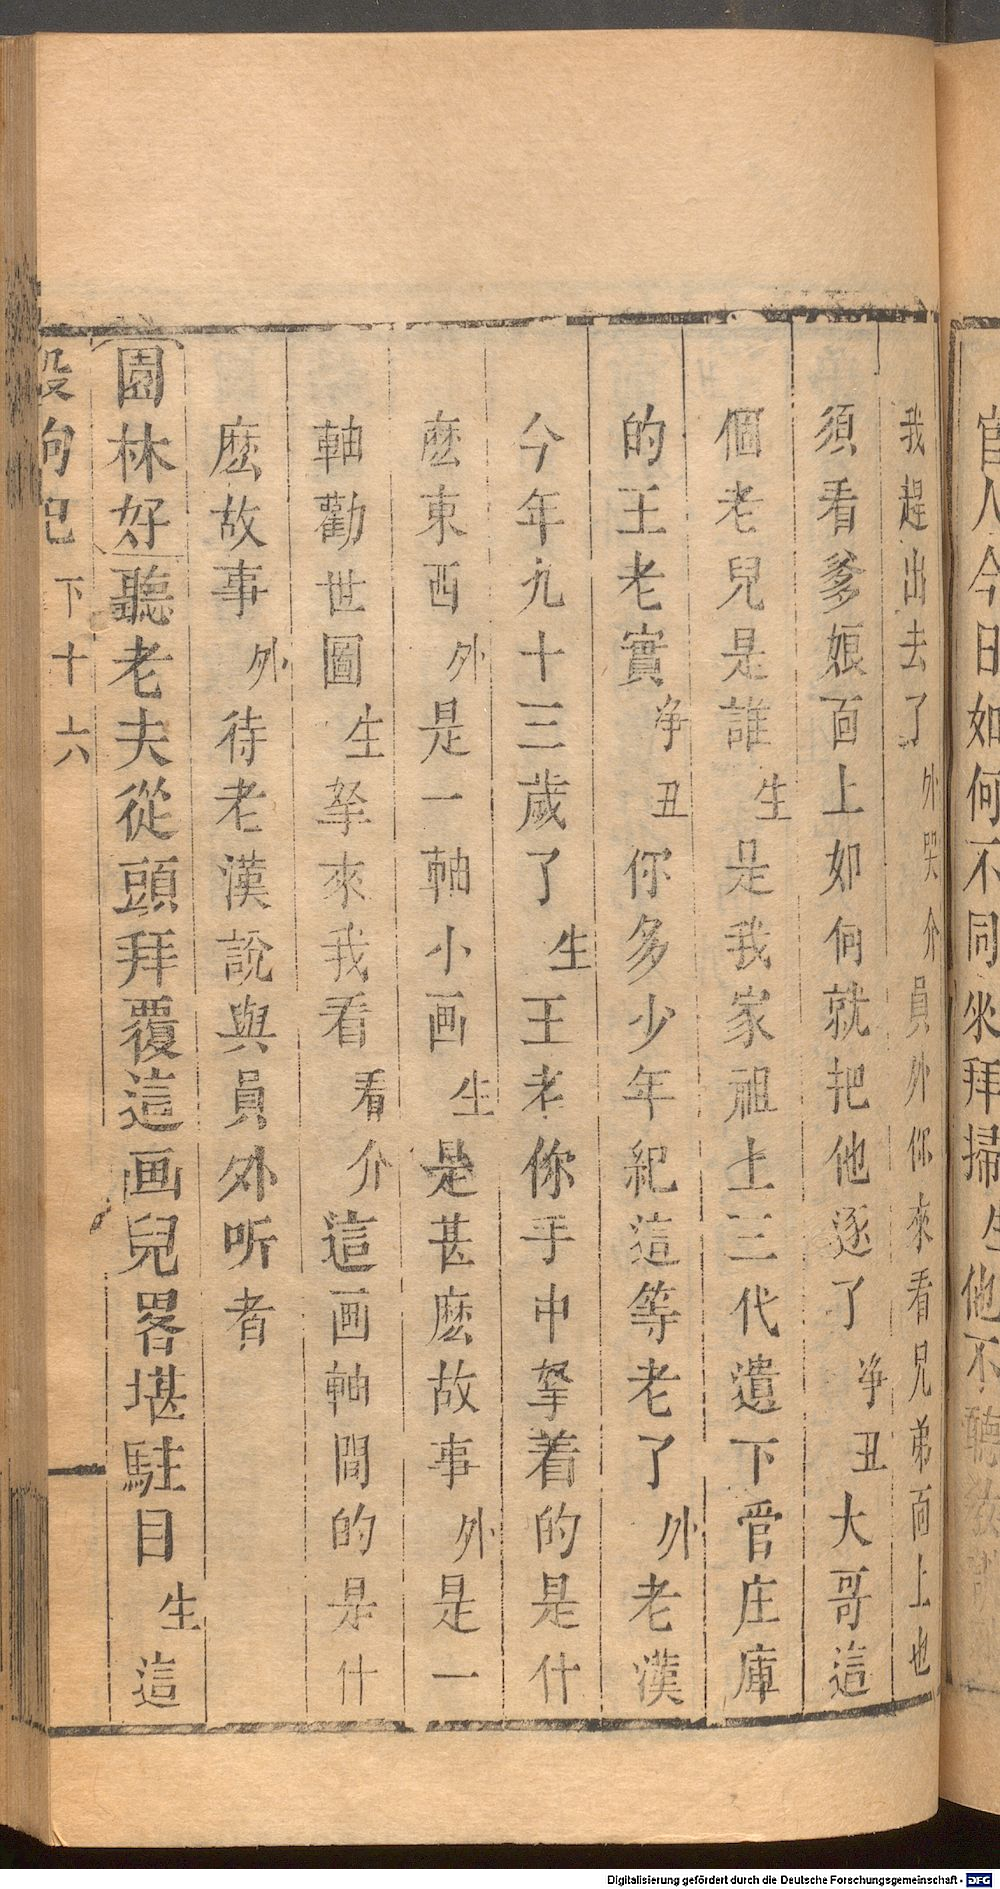 官人今日如何不同來拜掃生他不聽
我趕出去了外哭介員外你來看兄弟面上也
須看爹娘面上如何就把他逐了淨丑大哥這
個老兒是誰生是我家祖上三代遺下管庄庫
的王老實淨丑你多少年紀這等老了外老漢
今年九十三歲了生王老你手中拏着的是什
麽東西外是一軸小画生是甚麽故事外是一
軸勸世圖生拏來我看看介這画軸間的是什
麽故事外待老漢說與員外听者
園林好聽老夫從頭拜覆這画兒畧堪駐目生這
殺狗巳下十六
Digitalisierung gefördert durch die Deutsche Forschungsgemeinschaft - DFG